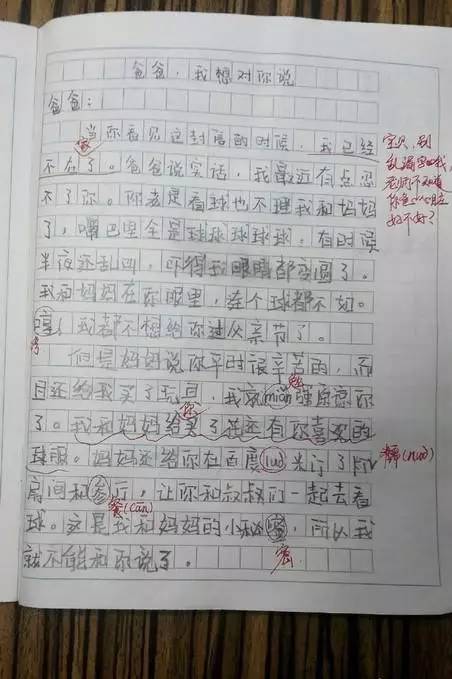 爸爸,我想对你说
爸爸:
当你看见这封信的时候,我已经
不在了。爸爸说实话,我最近有点忍
不了你。你老是看球也不理我和妈妈
了,嘴巴里全是球球球球球。有时候
半夜还乱叫,吓得我眼睛都变圆了。
我和妈妈在你眼里,连个球都不如。
我都不想给你过父亲节了。
但是妈妈说你平时很辛苦的,而
且还给我买了玩具,我就mian强原谅你
勉
了。我和妈妈给买了花还有你喜欢的
你
球服。妈妈还给你在百度luo米订了
糯(nuo)
房间和参厅,让你和叔叔们一起去看
餐(can)
球。这是我和妈妈的小秘,所以我
密
就不能和你说了。
宝贝,别
老师不知道
好不好?